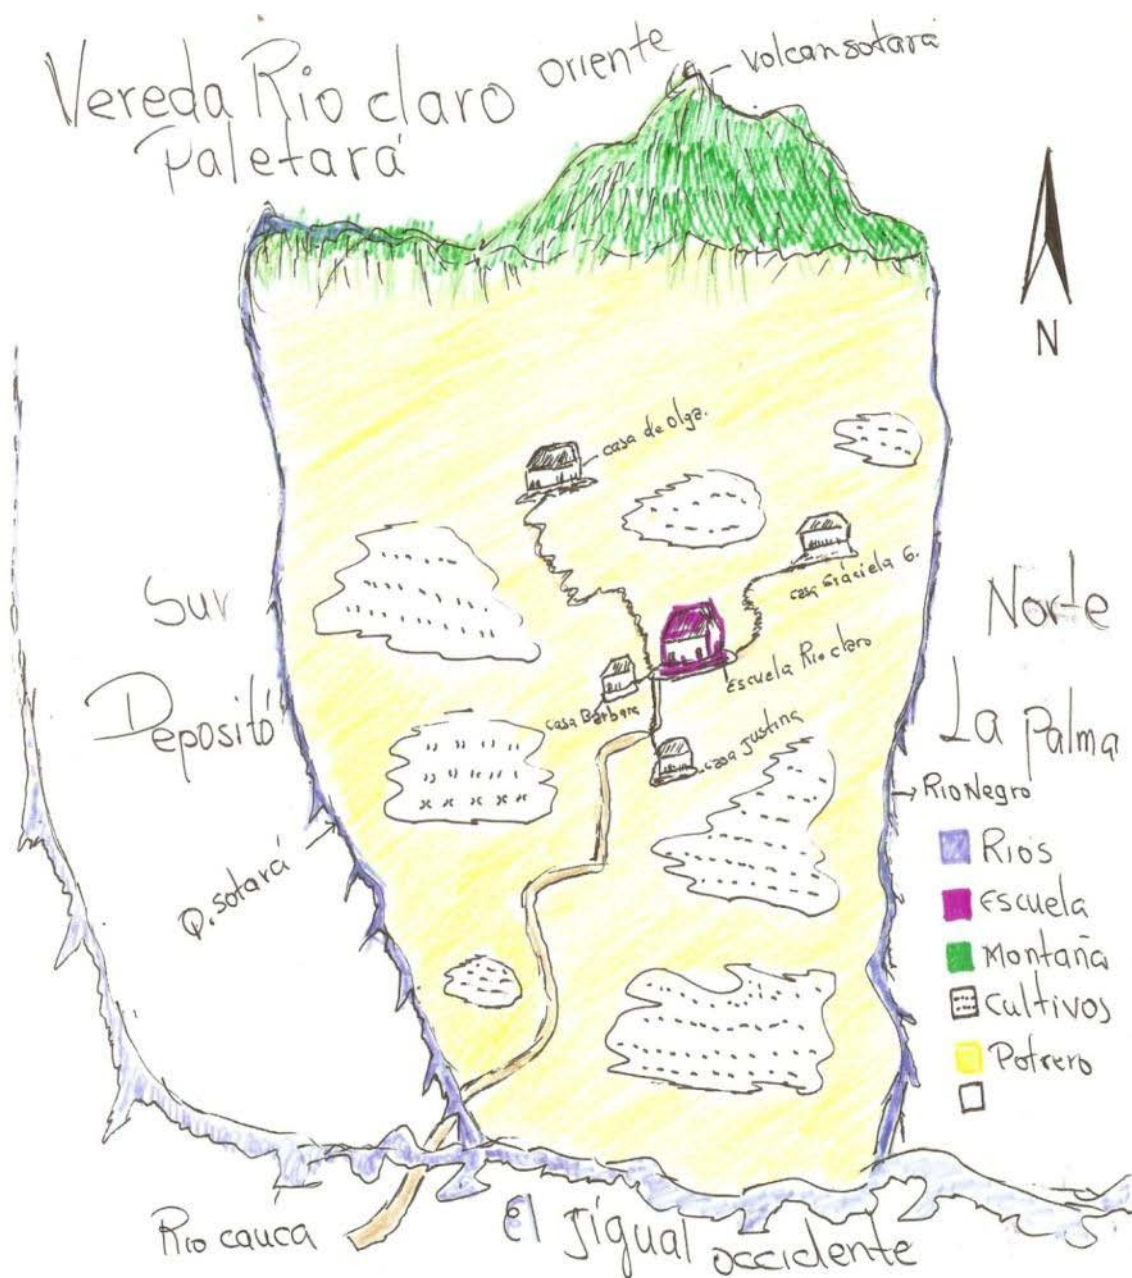 Vereda Rio claro
Paletará
oriente
volcan sotará
N
casa de olga.
casa Graciela G.
Sur
Norte
Escuela Rio claro
casa Barbara
casa justina
Depositó
La palma
Rio Negro
Q. sotará
Rios
Escuela
Montaña
cultivos
Potrero
Rio cauca
El jigual
occidente